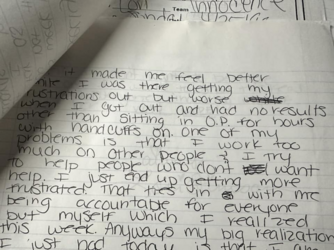 Team
Innocence
made me feel better
while I was there getting my
frustrations out but worse
when I got out and had no results
other than sitting in O.P. for hours
with handcuffs on. One of my
problems is that I work too
much on other people & I try
to help people who dont want
help. I just end up getting more
frustrated. That ties in with me
being accountable for everyone
but myself which I realized
this week. Anyways my big realization
I just had today is that I am